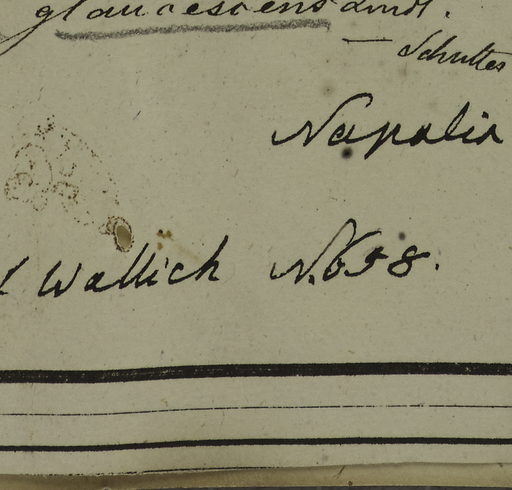 glaucescens Lindl.
— Schultes
Napalia
Wallich N. 658.